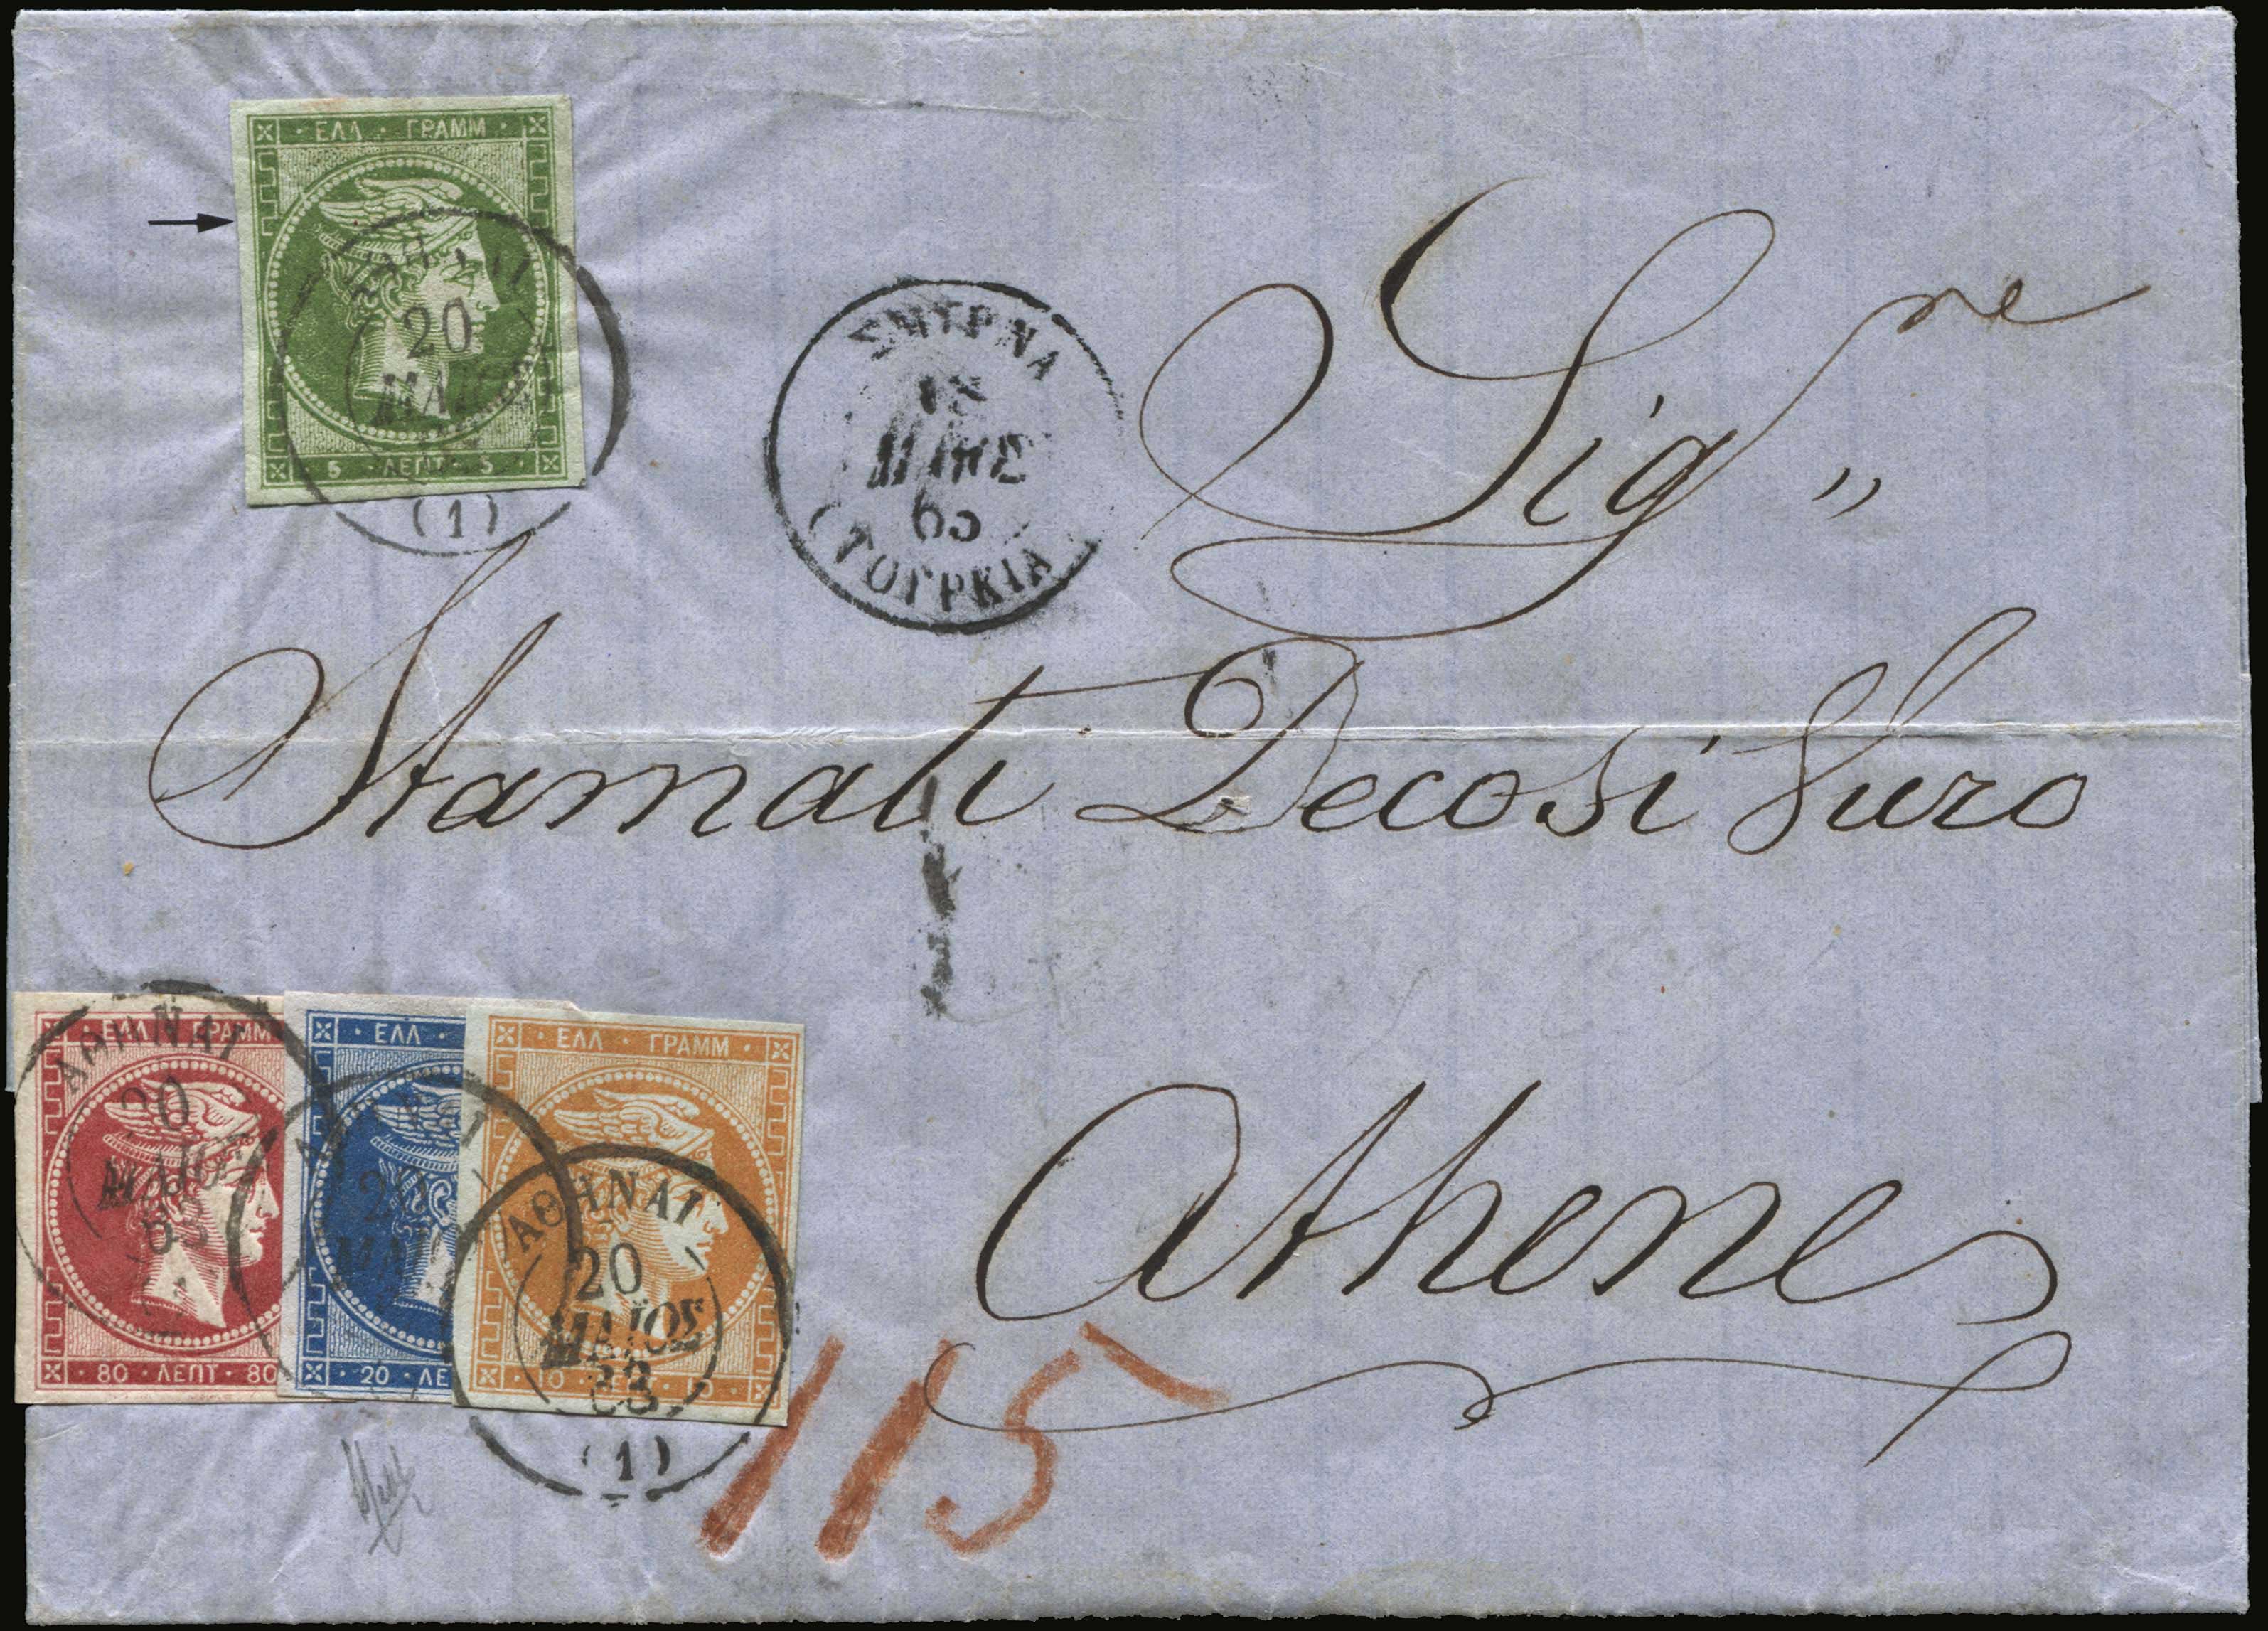 ΕΛΛ · ΓΡΑΜΜ
20
ΜΑΪΟΣ
5 · ΛΕΠΤ · 5
(1)
ΣΜΥΡΝΑ
18
65
(ΤΟΥΡΚΙΑ)
Sig.re
Stamati Decosi Vuro
Athene
ΕΛΛ · ΓΡΑΜΜ
ΑΘΗΝΑΙ
20
ΜΑΪΟΣ
80 · ΛΕΠΤ · 80
ΕΛΛ ·
20 · ΛΕ
ΕΛΛ · ΓΡΑΜΜ
ΑΘΗΝΑΙ
20
ΜΑΪΟΣ
10
(1)
115